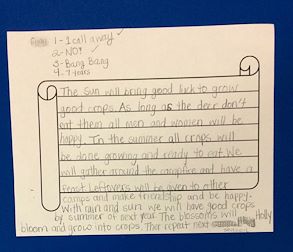 1-1 call away
2-NO!
3-Bang Bang
4-7 years
The Sun will bring good luck to grow
good crops. As long as the deer don't
eat them all men and women will be
happy. In the summer all crops will
be done growing and ready to eat. We
will gather around the campfire and have a
feast. Leftovers will be given to other
camps and make friendship and be happy.
With rain and sun we will have good crops
by summer of next year. The blossoms will
bloom and grow into crops. Then repeat next
Holly